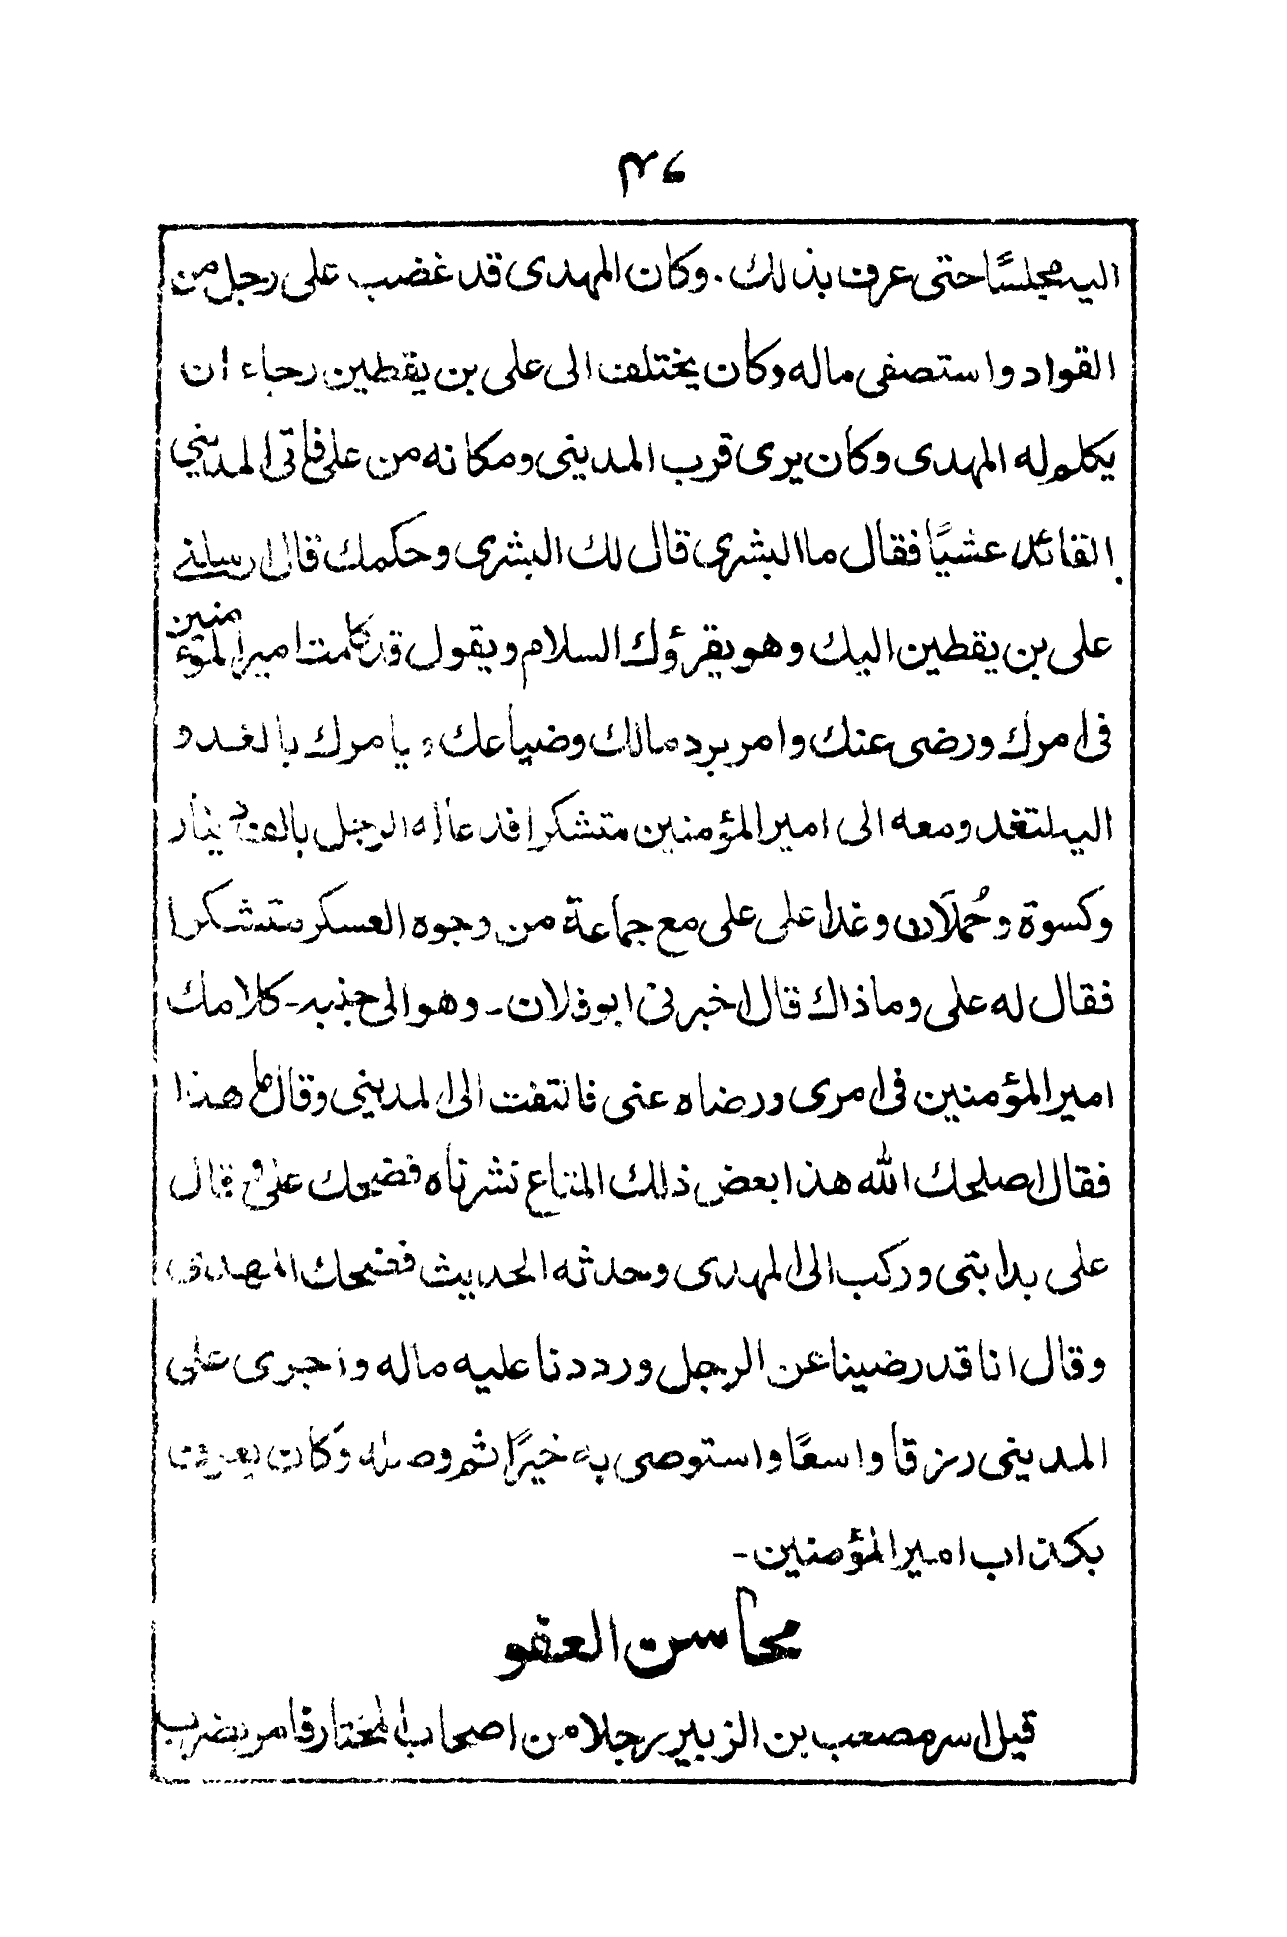 ٣٤
اليه مجلسًا حتى عرف بذلك. وكان المهدى قد غضب على رجل من
القواد واستصفى ماله وكان يختلف الى على بن يقطين رجاء ان
يكلم له المهدى وكان يرى قرب المدينى ومكانه من على فاتى المديني
القائد عشيًا فقال ما البشرى قال لك البشرى وحكمك قال ارسلنے
على بن يقطين اليك وهو يقرؤك السلام ويقول قد كلمت امير المؤمنين
فى امرك ورضى عنك وامر برد مالك وضياعك ويامرك بالغدو
اليه لتغدو معه الى امير المؤمنين متشكرا فدعا له الرجل بالف دينار
وكسوة وحُملان وغدا على على مع جماعة من وجوه العسكر متشكرا
فقال له على وما ذاك قال اخبرنى ابو فلان - وهو الى جنبه - كلامك
امير المؤمنين فى امرى ورضاه عنى فالتفت الى المديني وقال ما هذا
فقال اصلحك الله هذا بعض ذلك المتاع نشرناه فضحك على وقال
على بدابتى وركب الى المهدى وحدثه الحديث فضحك المهدى
وقال انا قد رضينا عن الرجل ورددنا عليه ماله واجرى على
المدينى رزقا واسعًا واستوصى به خيرًا ثم وصله وكان يعرف
بكذاب امير المؤمنين -
محاسن العفو
قيل اسر مصعب بن الزبير رجلا من اصحاب المختار فامر بضرب